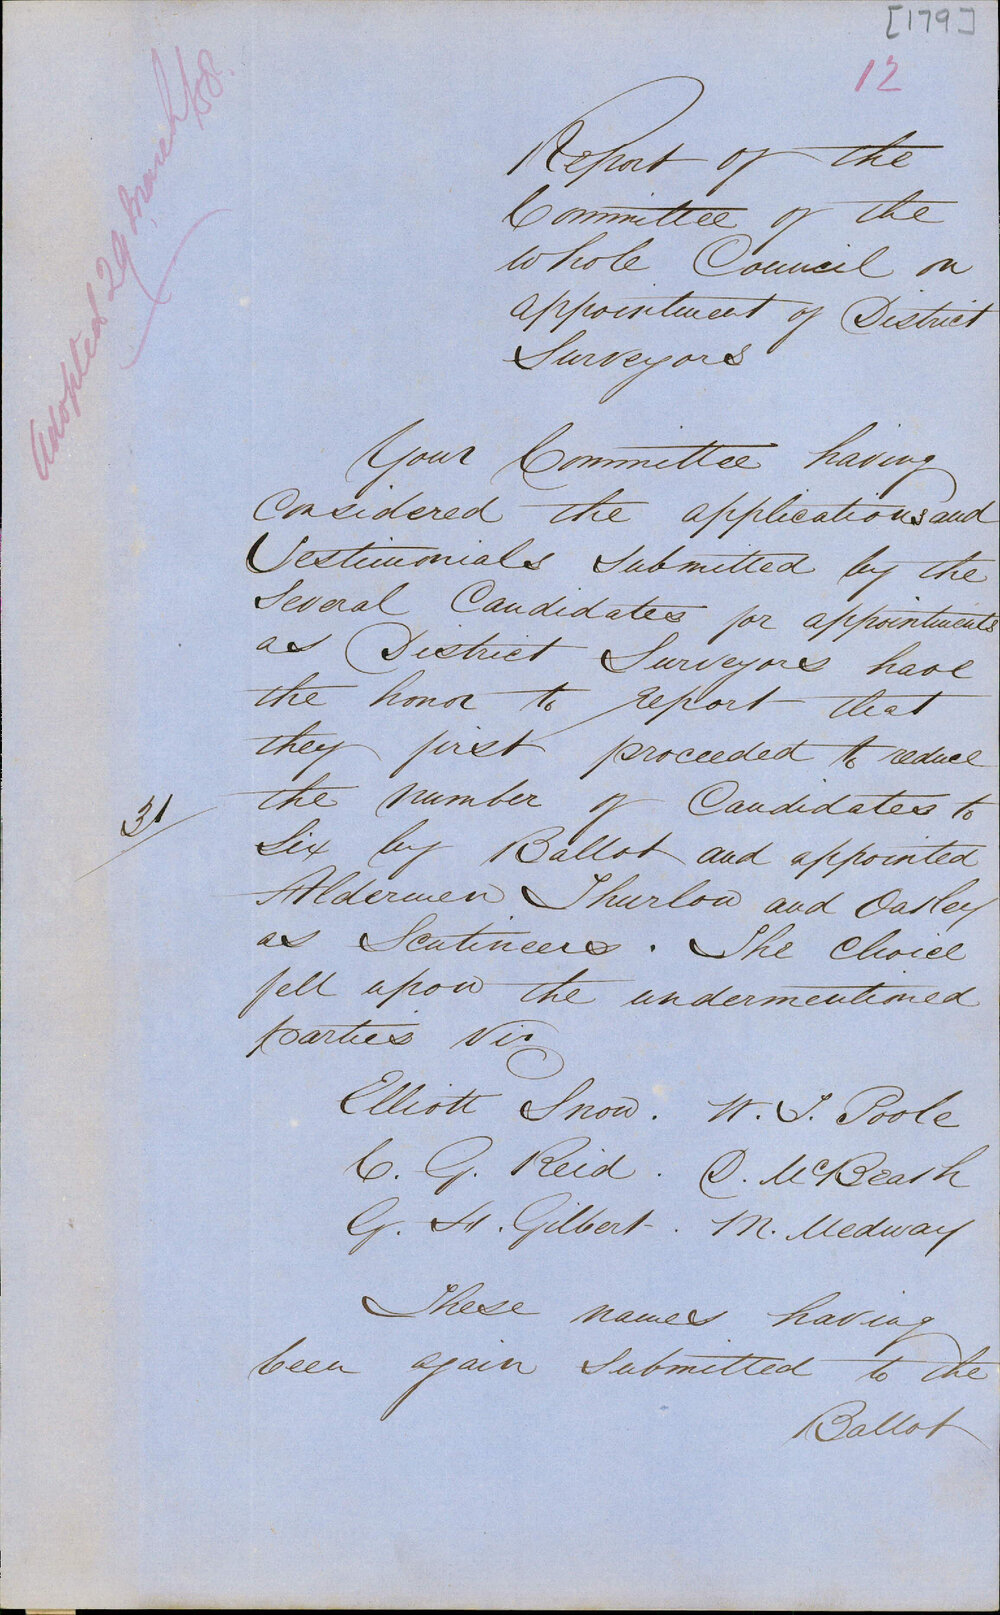 [179]
12
Adopted 29 March /58.
Report of the
Committee of the
whole Council on
appointment of District
Surveyors
Your Committee having
considered the applications and
Testimonials submitted by the
several Candidates for appointments
as District Surveyors have
the honor to report that
they first proceeded to reduce
the number of Candidates to
31
six by Ballot and appointed
Aldermen Thurlow and Oatley
as Scutineers. The choice
fell upon the undermentioned
parties Viz
Elliott Snow. W. T. Poole
C. G. Reid. D. McBeath
G. H. Gilbert. M. Medway
These names having
been again submitted to the
Ballot